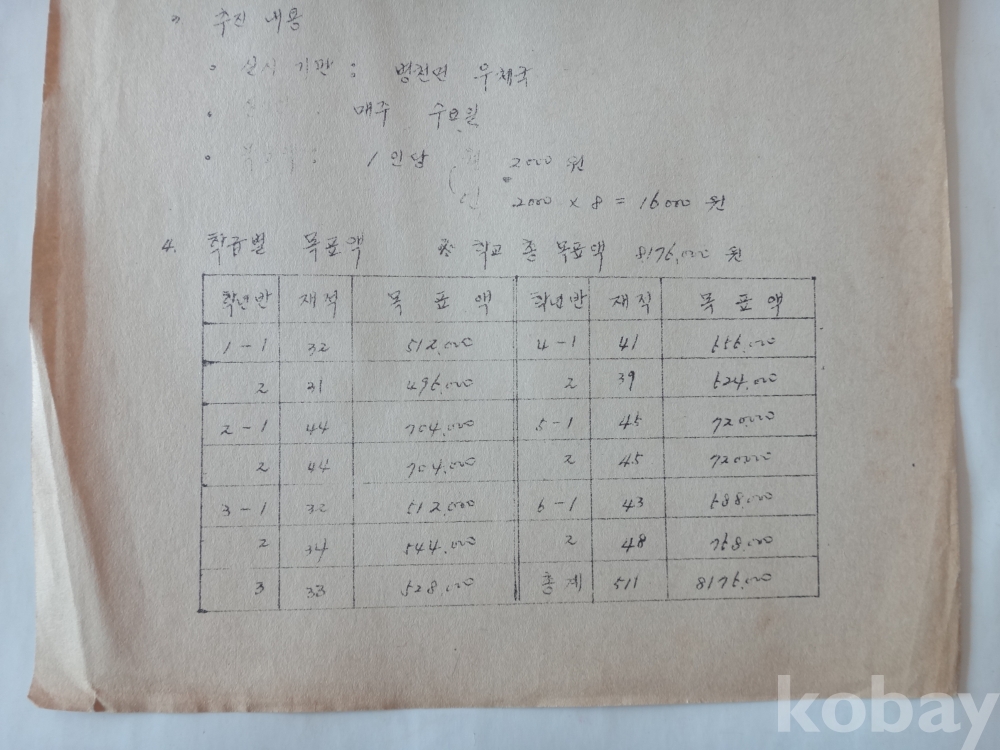 추진 내용
· 실시 기관 : 병천면 우체국
· 매주 수요일
· : 1인당 월 2000원
년 2000 × 8 = 16000원
4. 학급별 목표액 학교 총 목표액 8176,000원
학년반 재적 목표액 학년반 재적 목표액
1-1 32 512,000 4-1 41 656,000
2 31 496,000 2 39 624,000
2-1 44 704,000 5-1 45 720,000
2 44 704,000 2 45 720,000
3-1 32 512,000 6-1 43 688,000
2 34 544,000 2 48 768,000
3 33 528,000 총계 511 8176,000
kobay